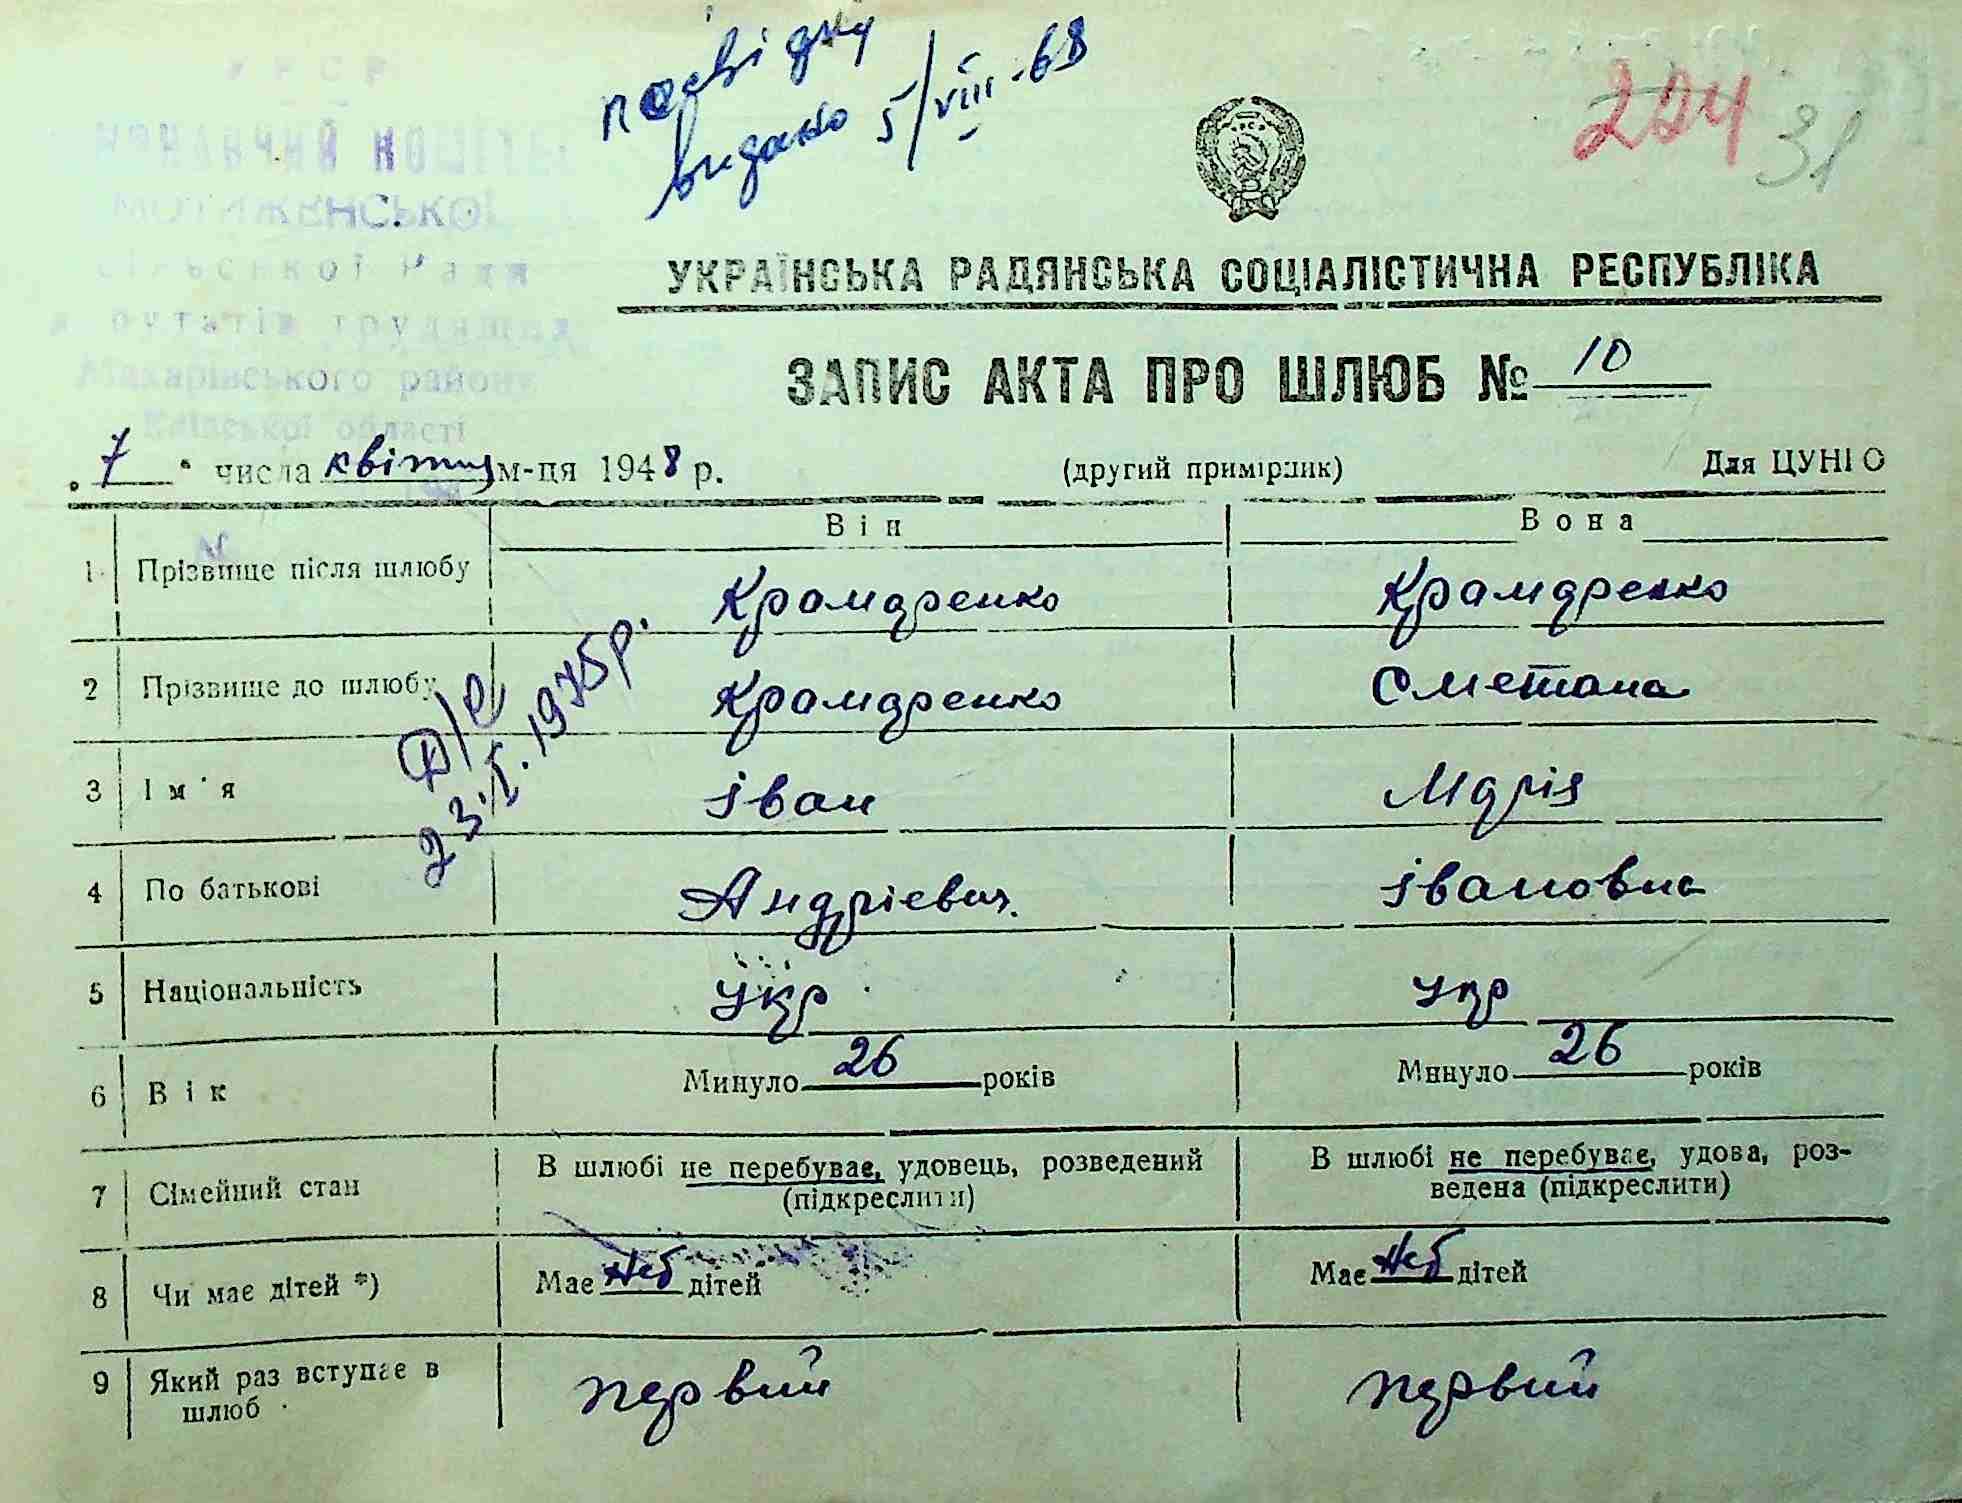 посвідку
видано 5/VIII-68
224
31
УРСР
ВИКОНАВЧИЙ КОМІТЕТ
МОТИЖЕНСЬКОЇ
сільської Ради
депутатів трудящих
Макарівського району
Київської області
УКРАЇНСЬКА РАДЯНСЬКА СОЦІАЛІСТИЧНА РЕСПУБЛІКА
ЗАПИС АКТА ПРО ШЛЮБ № 10
„7“ числа квітня м-ця 1948 р. (другий примірник) Для ЦУНГО
Він Вона
1 Прізвище після шлюбу Крамаренко Крамаренко
2 Прізвище до шлюбу Крамаренко Сметана
23.I.1975р.
3 Ім'я іван Марія
4 По батькові Андрієвич івановна
5 Національність Укр Укр
6 Вік Минуло 26 років Минуло 26 років
7 Сімейний стан В шлюбі не перебуває, удовець, розведений (підкреслити) В шлюбі не перебуває, удова, роз-
ведена (підкреслити)
8 Чи має дітей *) Має дітей Має дітей
9 Який раз вступає в
шлюб первий первий